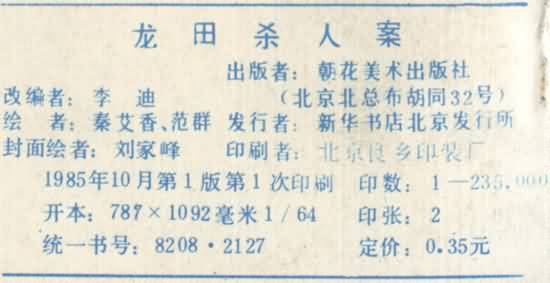 龙田杀人案
出版者：朝花美术出版社
改编者：李迪 （北京北总布胡同32号）
绘者：秦艾香、范群 发行者：新华书店北京发行所
封面绘者：刘家峰 印刷者：北京良乡印装厂
1985年10月第1版第1次印刷 印数：1—235,000
开本：787×1092毫米1/64 印张：2
统一书号：8208·2127 定价：0.35元